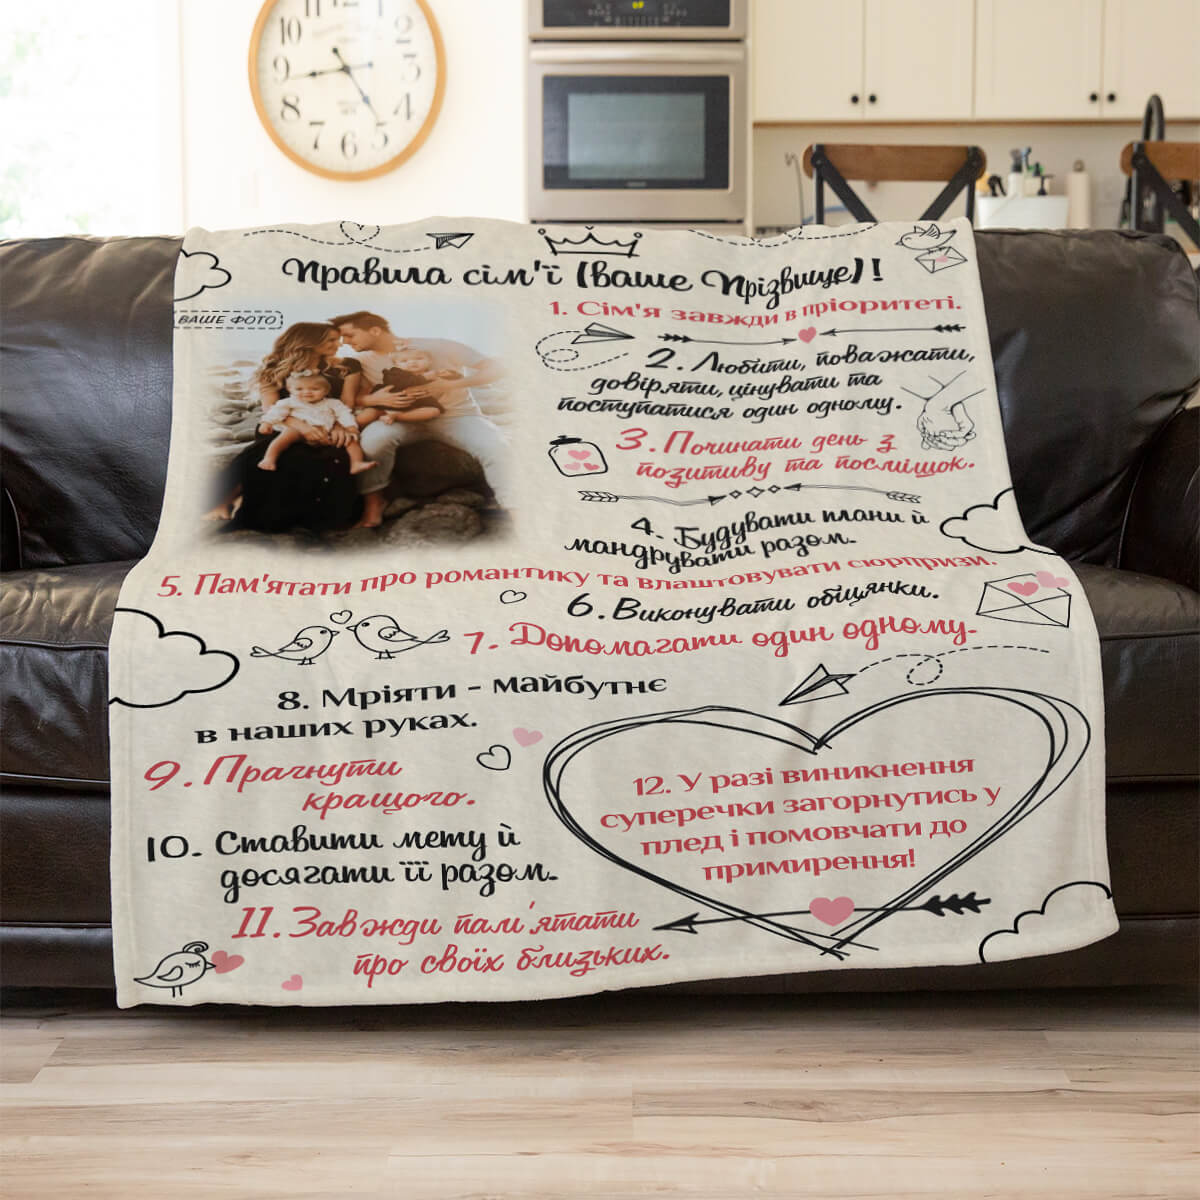 Правила сім'ї (ваше Прізвище)!
ВАШЕ ФОТО
1. Сім'я завжди в пріоритеті.
2. Любити, поважати,
довіряти, цінувати та
поступатися один одному.
3. Починати день з
позитиву та посмішок.
4. Будувати плани й
мандрувати разом.
5. Пам'ятати про романтику та влаштовувати сюрпризи.
6. Виконувати обіцянки.
7. Допомагати один одному.
8. Мріяти - майбутнє
в наших руках.
9. Прагнути
кращого.
10. Ставити мету й
досягати її разом.
11. Завжди пам'ятати
про своїх близьких.
12. У разі виникнення
суперечки загорнутись у
плед і помовчати до
примирення!
10
2
9
3
8
4
7
6
5